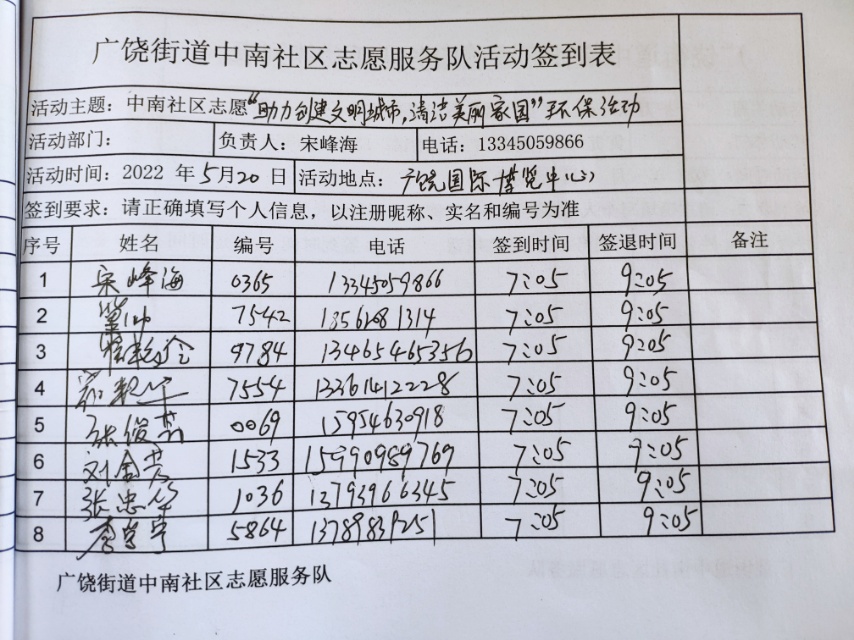 广饶街道中南社区志愿服务队活动签到表
活动主题：中南社区志愿“助力创建文明城市，清洁美丽家园”环保活动
活动部门： 负责人：宋峰海 电话：13345059866
活动时间：2022 年 5月20 日 活动地点：广饶国际博览中心
签到要求：请正确填写个人信息，以注册昵称、实名和编号为准
序号 姓名 编号 电话 签到时间 签退时间 备注
1 宋峰海 0365 13345059866 7:05 9:05
2 7542 13561081314 7:05 9:05
3 9784 13465465356 7:05 9:05
4 7554 13361412228 7:05 9:05
5 张俊英 0069 15954630918 7:05 9:05
6 刘金芳 1533 15990989769 7:05 9:05
7 张忠华 1036 13793966345 7:05 9:05
8 李宁宁 5864 13789839251 7:05 9:05
广饶街道中南社区志愿服务队